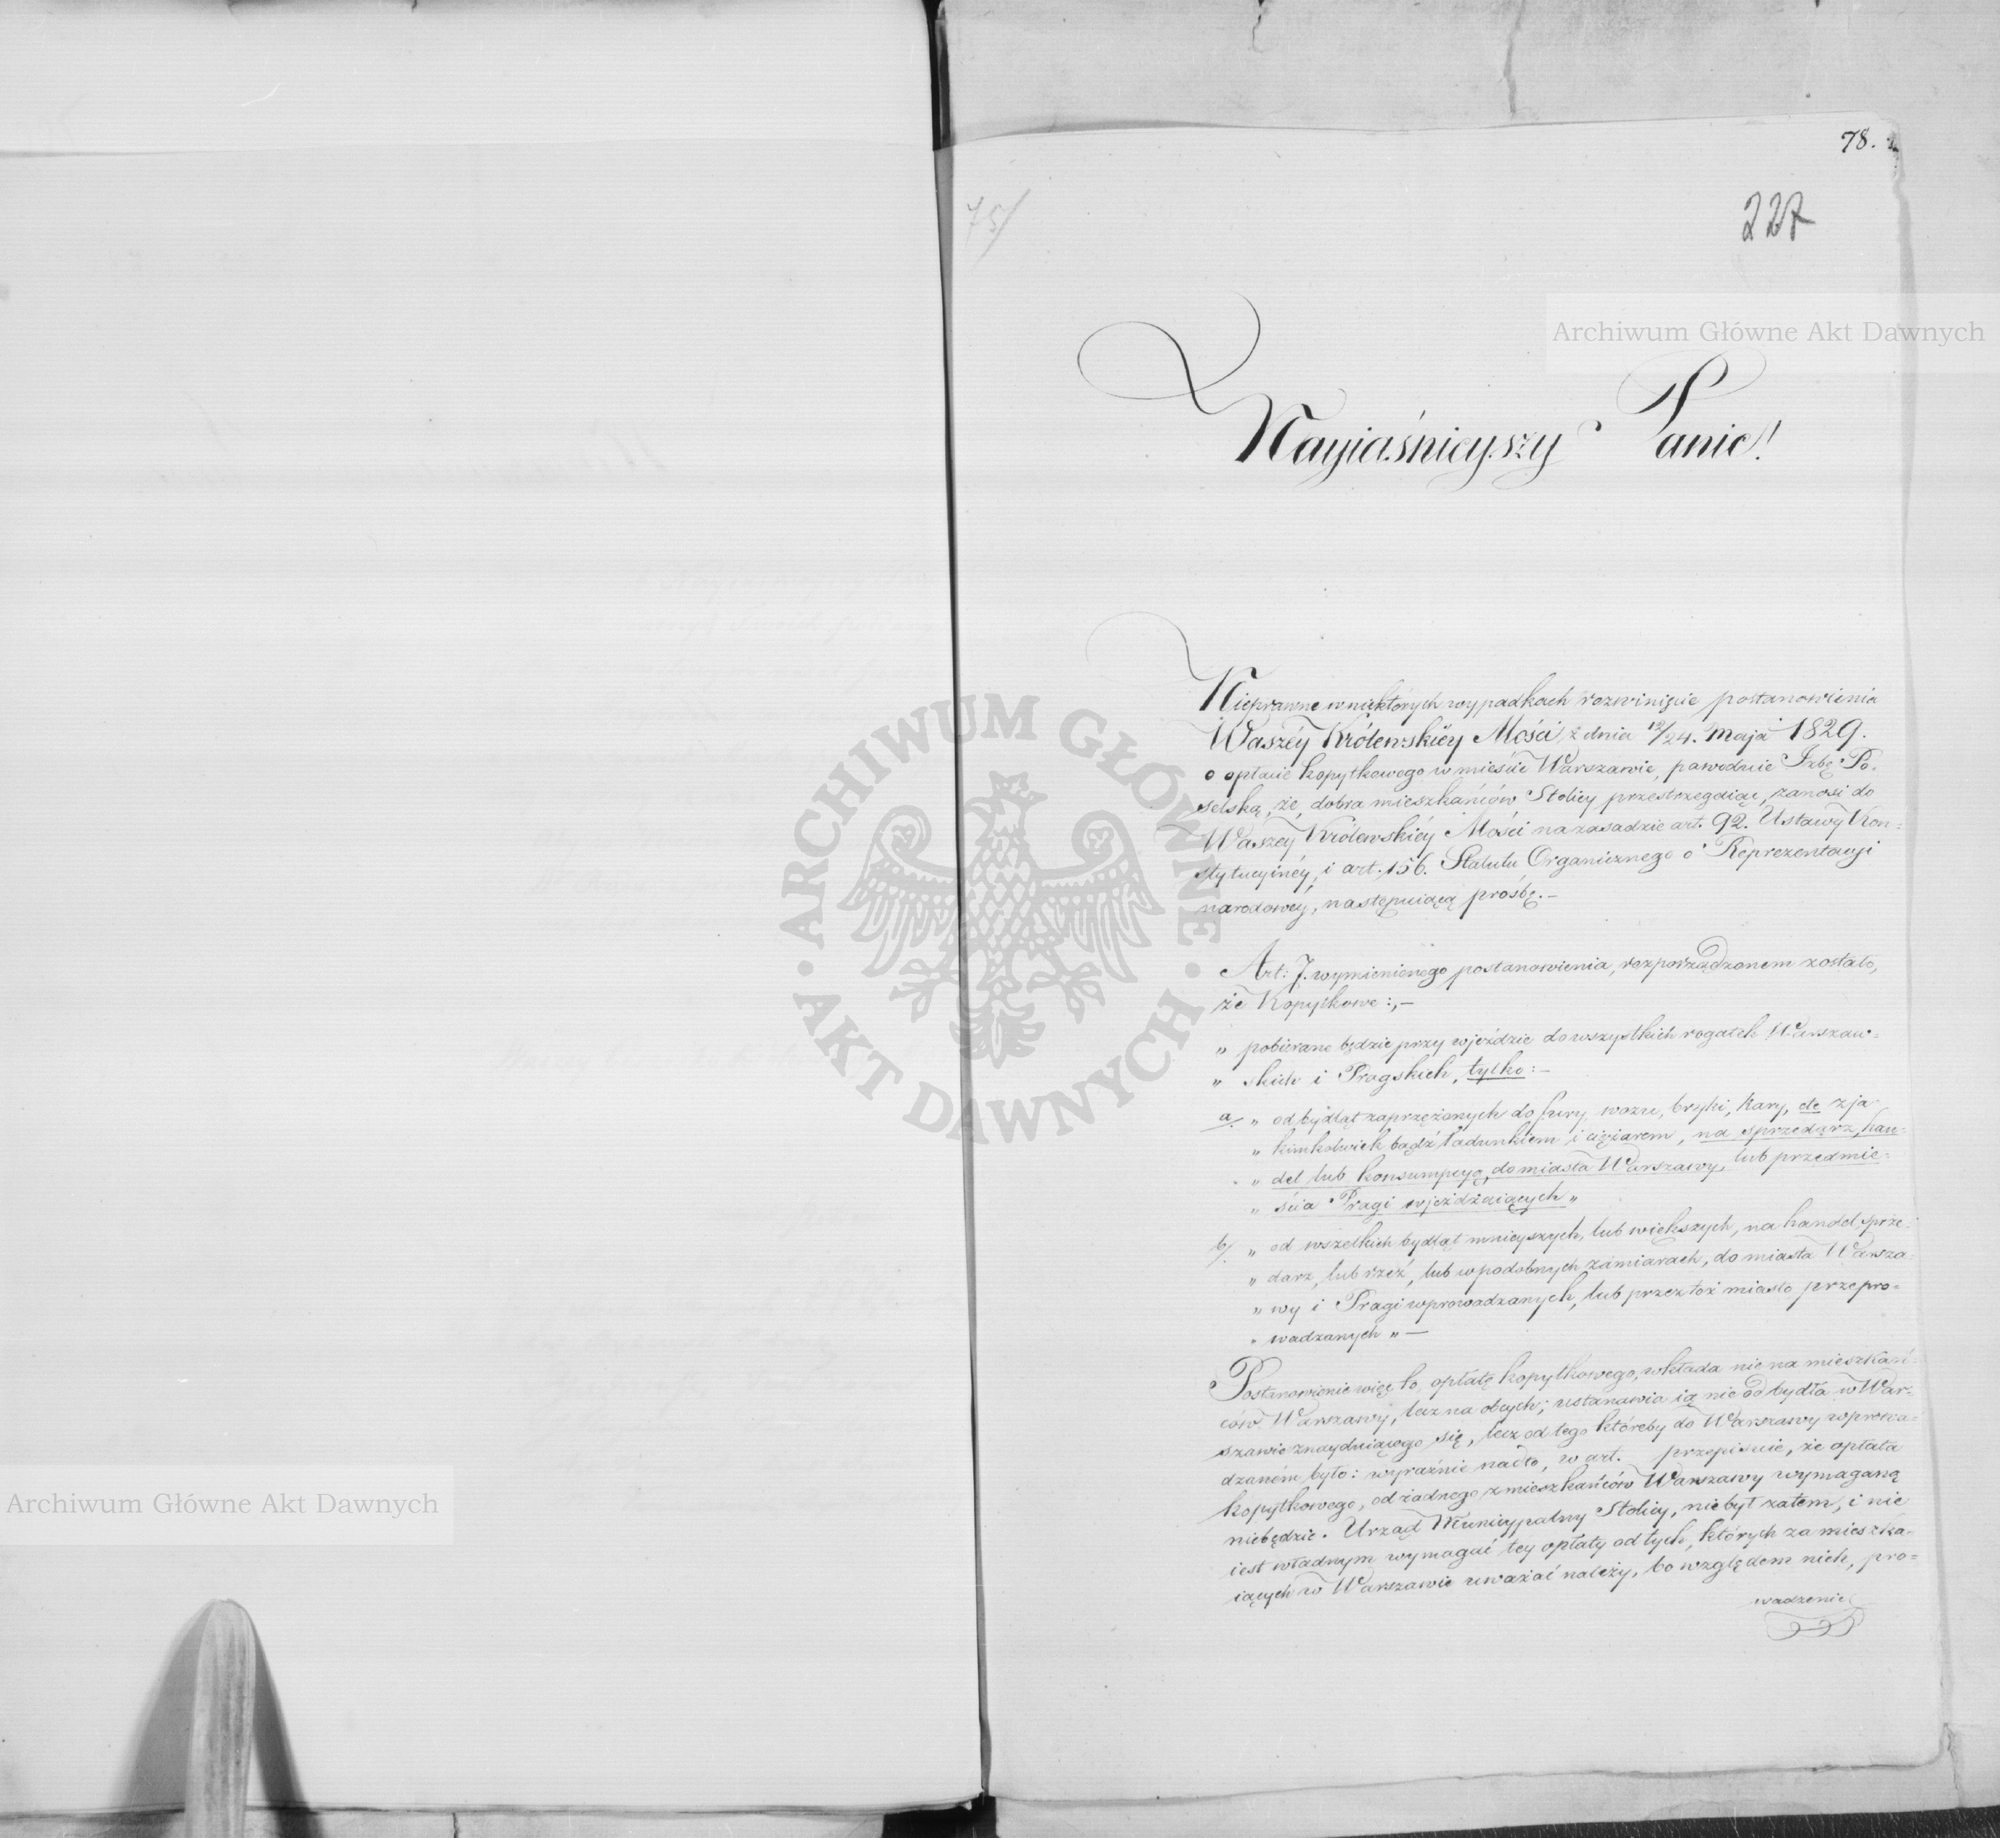 78.
75/
227
Archiwum Główne Akt Dawnych
Nayiaśnieyszy Panie!
Nieprawne w niektórych wypadkach rozwinięcie postanowienia
Waszéy Królewskiéy Mości z dnia 12/24. Maja 1829.
o opłacie kopytkowego w mieście Warszawie, powoduie Izbę Po-
selską, że, dobra mieszkańców Stolicy przestrzegaiąc, zanosi do
Waszéy Królewskiéy Mości na zasadzie art. 92. Ustawy Kon-
stytucyinéy, i art. 156. Statutu Organicznego o Reprezentacyi
narodowéy, następuiącą prośbę.—
Art: 7. wymienionego postanowienia, rozporządzonem zostało,
że Kopytkowe:,—
„ pobierane będzie przy wjeździe do wszystkich rogatek Warszaw-
„ skich i Pragskich, tylko:—
a/. „ od bydląt zaprzężonych do fury, wozu, bryki, Kary, etc z ja-
„ kimkolwiek bądź ładunkiem i ciężarem, na sprzedarz, han-
„ del lub konsumpcyą, do miasta Warszawy, lub przedmie-
„ ścia Pragi wjeżdżaiących „
b/. „ od wszelkich bydląt mnieyszych, lub większych, na handel, sprze-
„ darz, lub rzeź, lub w podobnych zamiarach, do miasta Warsza-
„ wy i Pragi wprowadzanych, lub przez toż miasto przepro-
„ wadzanych „ —
Postanowienie więc to, opłatę kopytkowego, wkłada nie na mieszkań-
ców Warszawy, lecz na obcych; ustanawia ią nie od bydła w War-
szawie znayduiącego się, lecz od tego któreby do Warszawy wprowa-
dzaném było: wyraźnie nadto, w art. przepisuie, że opłata
kopytkowego, od żadnego z mieszkańców Warszawy wymaganą
niebędzie. Urząd Municypalny Stolicy, niebył zatem, i nie
iest władnym wymagać tey opłaty od tych, których za mieszka-
iących w Warszawie uważać należy, bo względem nich, pro-
wadzenie
ARCHIWUM GŁÓWNE AKT DAWNYCH
Archiwum Główne Akt Dawnych